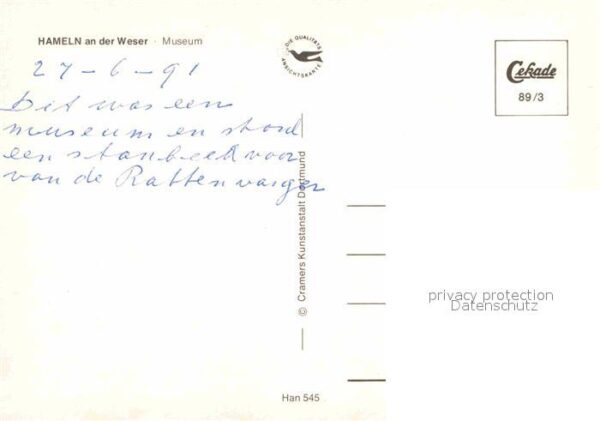 HAMELN an der Weser · Museum
DIE QUALITÄTS
ANSICHTSKARTE
Cekade
89/3
27-6-91
Dit was een
museum en stond
een stanbeelt voor
van de Rattenvanger
© Cramers Kunstanstalt Dortmund
privacy protection
Datenschutz
Han 545